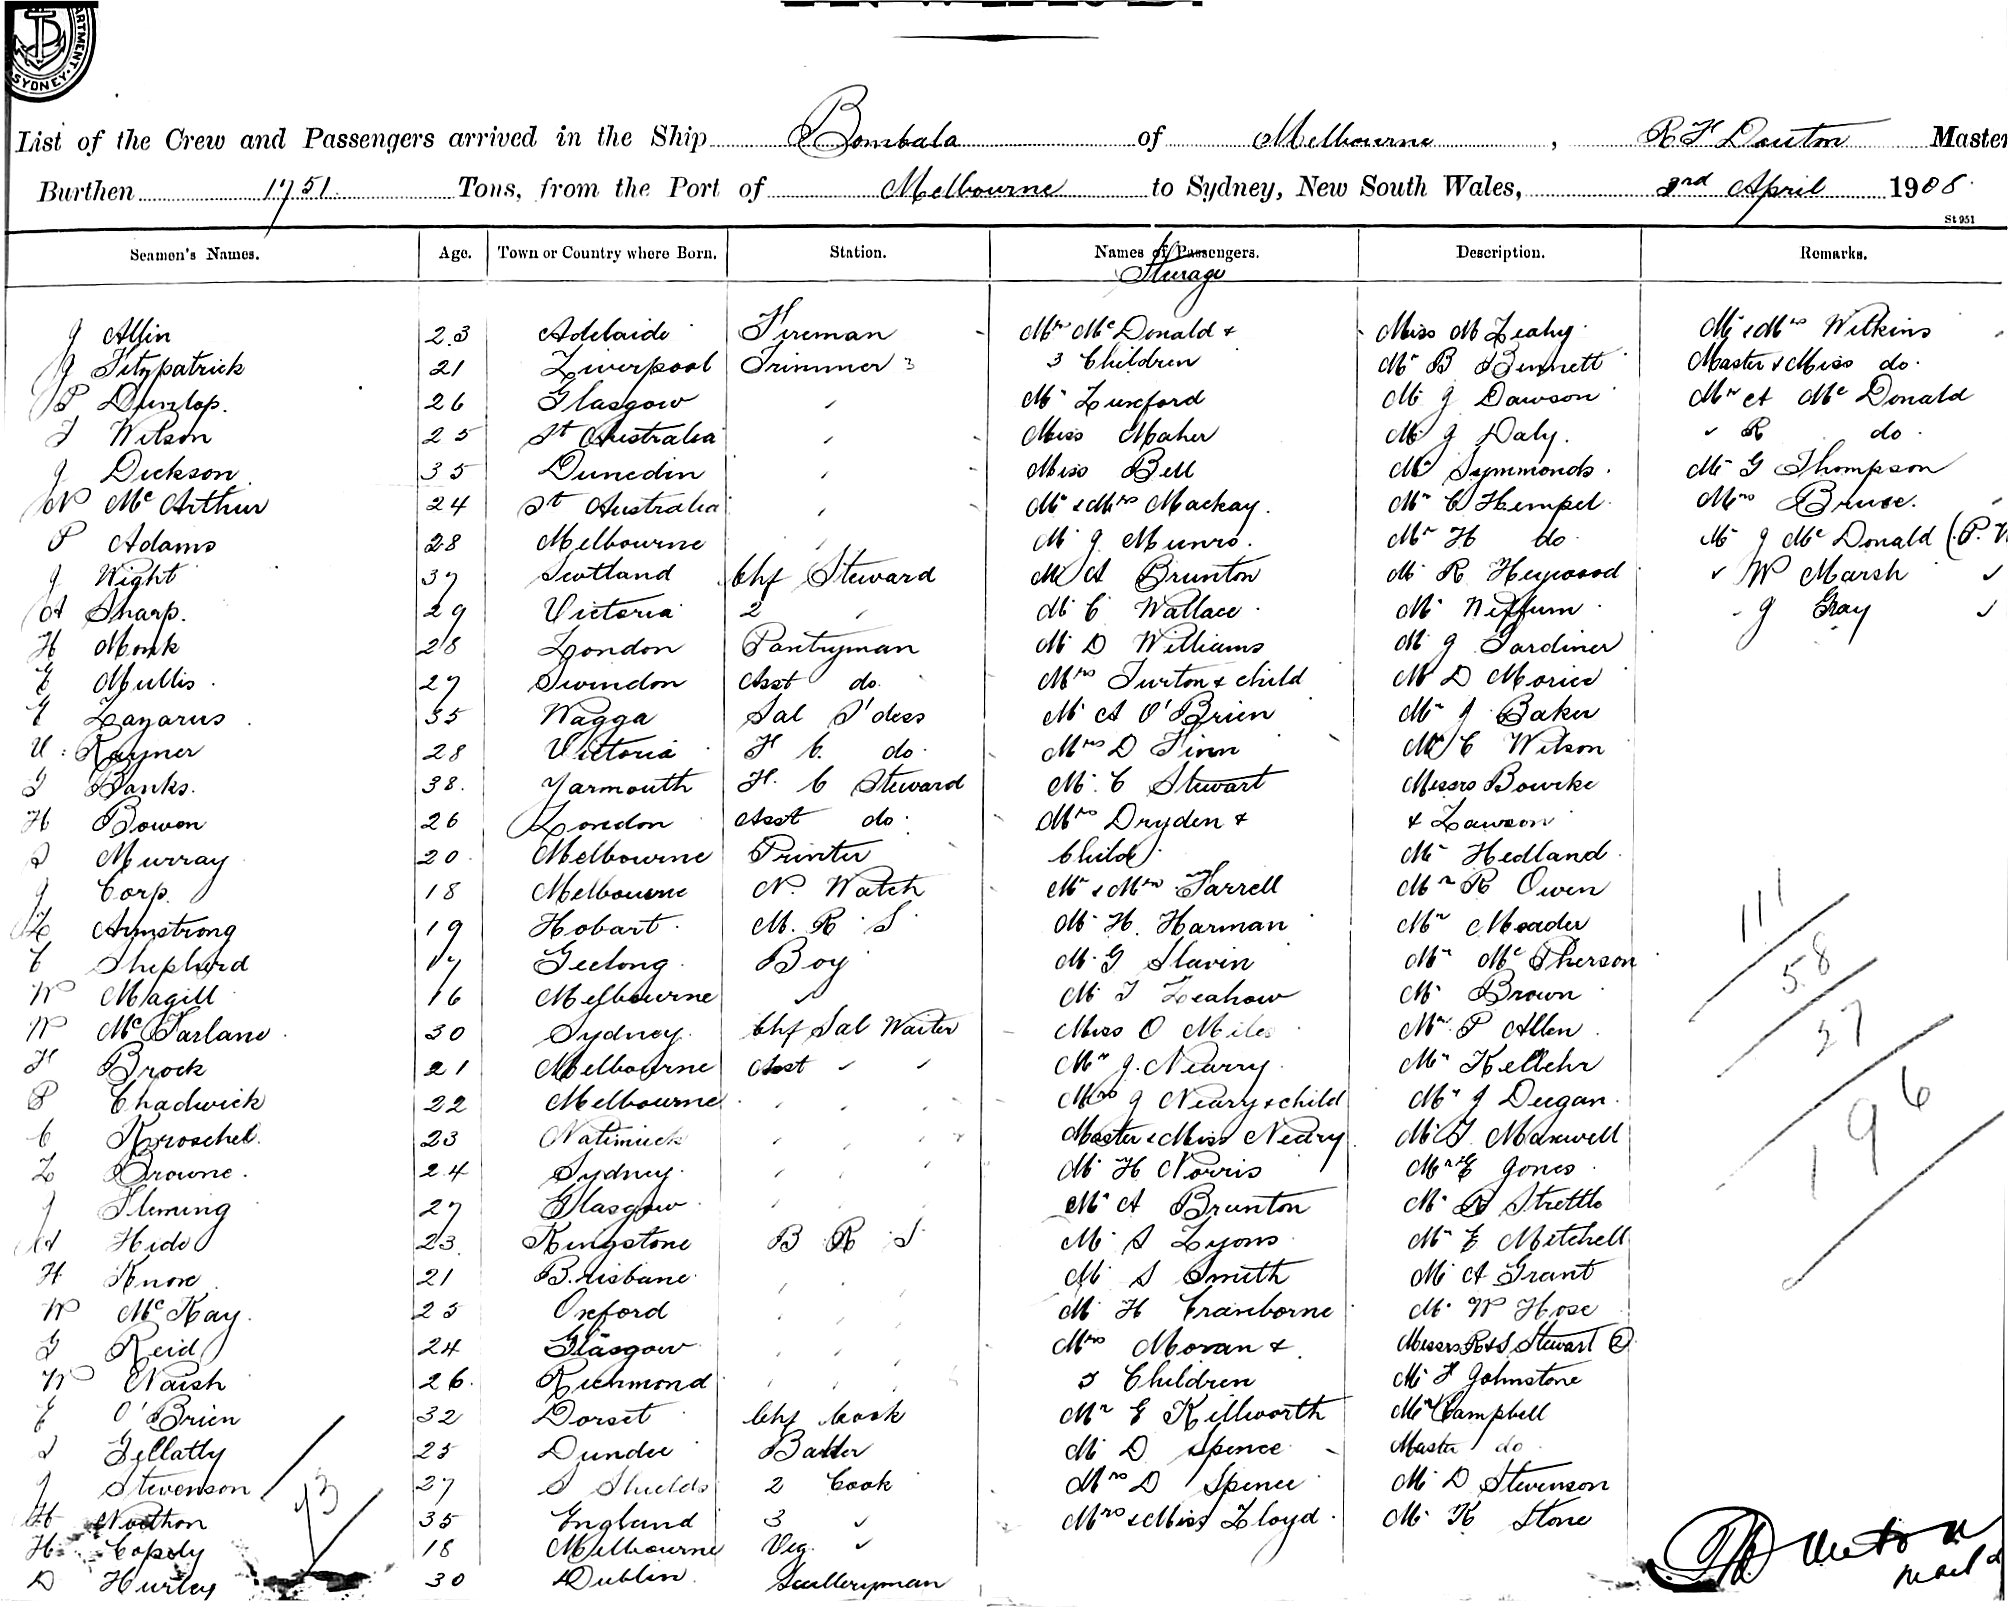 SYDNEY
List of the Crew and Passengers arrived in the Ship Bombala of Melbourne, R F Douton Master
Burthen 1751 Tons, from the Port of Melbourne to Sydney, New South Wales, 3rd April 1908
St 951
Seamen's Names. Age. Town or Country where Born. Station. Names of Passengers. Description. Remarks.
Steerage
J Allin 23 Adelaide Fireman Mrs McDonald & Miss M Leahy Mr & Mrs Wilkins
J Fitzpatrick 21 Liverpool Trimmer 3 Children Mr B Bennett Master & Miss do
P Dunlop. 26 Glasgow " Mr Luxford Mr J Dawson Mr A McDonald
J Wilson 25 St Australia " Miss Maher Mr J Daly. " R do
J Dickson 35 Dunedin " Miss Bell Mr Symmonds. Mr G Thompson
W McArthur 24 St Australia " Mr & Mrs Mackay. Mr C Hempel. Mrs Bruce.
P Adams 28 Melbourne " Mr J Munro. Mr H do Mr J McDonald (P.
J Wight 37 Scotland Chf Steward Mr A Brunton Mr R Heywood " W Marsh "
A Sharp. 29 Victoria 2 " Mr C Wallace Mr " J Gray "
H Monk 28 London Pantryman Mr D Williams Mr J Gardiner
E Mullis. 27 Swindon Asst do. Mrs Turton & child Mr D Morice
E Lazarus 35 Wagga Sal S'dess Mr A O'Brien Mr J Baker
U. Rayner 28 Victoria F C. do. Mrs D Finn Mr C Wilson
J Banks. 38. Yarmouth F. C Steward Mr. C Stewart Messrs Bourke
H Bowen 26 London Asst do. Mrs Dryden & & Lawson
J Murray 20 Melbourne Printer Child. Mr Hedland
J Corp. 18 Melbourne N. Watch Mr & Mrs Farrell Mr R Owen
L Armstrong 19 Hobart M. R S Mr H. Harman Mr Meader
C Shepherd 17 Geelong Boy Mr G Slavin Mr McPherson
W Magill 16 Melbourne " Mr T Leahow Mr Brown
W McFarlane 30 Sydney. Chf Sal Waiter Miss O Miles Mr. P Allen
F Brock 21 Melbourne Asst " " Mr J. Nearry Mr Kellehr
P Chadwick 22 Melbourne " " " Mrs J Neary & child Mr J Deegan.
C Kroschel. 23 Natimuck " " " Master & Miss Neary Mr T. Maxwell
L Browne. 24 Sydney. " " " Mr H Norris Mr E Jones
J Fleming 27 Glasgow " " " Mr A Brunton Mr R Strettle
A Hide 23 Kingstone B R S Mr S Lyons Mr E Mitchell
H Knox 21 Brisbane " " " Mr S Smith Mr A Grant
W McKay. 25 Oxford " " " Mr H Cranborne Mr W Hose
J Reid 24 Glasgow " " " Mrs Moran & Messrs R & S Stewart 2
W Naish 26. Richmond " " " 3 Children Mr F Johnstone
E O'Brien 32 Dorset Chf Cook Mr E Killworth Mr Campbell
J Gellatly 25 Dundee Baker Mr D Spence Master do
J Stevenson 27 S Shields 2 Cook Mrs D Spence Mr D Stevenson
H Northon 35 England 3 " Mrs & Miss Lloyd. Mr K Stone
H Copely 18 Melbourne Veg. "
D Hurley 30 Dublin Sculleryman
111
58
27
196
73